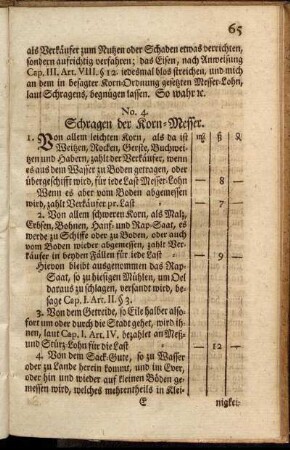 65
als Verkäufer zum Nutzen oder Schaden etwas verrichten,
sondern aufrichtig verfahren; das Eisen, nach Anweisung
Cap. III. Art. VIII. § 12. iedesmal blos streichen, und mich
an dem in besagter Korn-Ordnung gesetzten Messer-Lohn,
laut Schragens, begnügen lassen. So wahr ꝛc.
No. 4.
Schragen der Korn-Messer.
1. Von allem leichten Korn, als da ist
Weitzen, Rocken, Gerste, Buchwei-
tzen und Habern, zahlt der Verkäufer, wenn
es aus dem Wasser zu Boden getragen, oder
übergeschifft wird, für iede Last Messer-Lohn — 8 —
Wenn es aber vom Boden abgemessen
wird, zahlt Verkäufer pr. Last — 7
2. Von allem schweren Korn, als Malz,
Erbsen, Bohnen, Hanf- und Rap-Saat, es
werde zu Schiffe oder zu Boden, oder auch
vom Boden wieder abgemessen, zahlt Ver-
käufer in beyden Fällen für iede Last — 9 —
Hievon bleibt ausgenommen das Rap-
Saat, so zu hiesigen Mühlen, um Oel
daraus zu schlagen, versandt wird, be-
sage Cap. I. Art. II. § 3.
3. Von dem Getreide, so Eile halber also-
fort um oder durch die Stadt gehet, wird ih-
nen, laut Cap. I. Art. IV. bezahlet an Meß-
und Stürz-Lohn für die Last — 12 —
4. Von dem Sack-Gute, so zu Wasser
oder zu Lande herein kommt, und im Ever,
oder hin und wieder auf kleinen Böden ge-
messen wird, welches mehrentheils in Klei-
E nigkei-